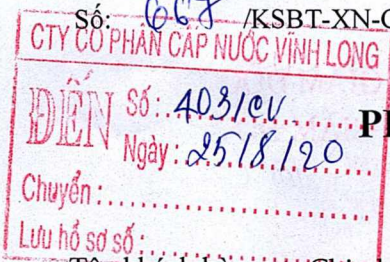 Số: 667 /KSBT-XN-
CTY CỔ PHẦN CẤP NƯỚC VĨNH LONG
ĐẾN
Số: 403/CV
Ngày: 25/8/20
Chuyển:
Lưu hồ sơ số: